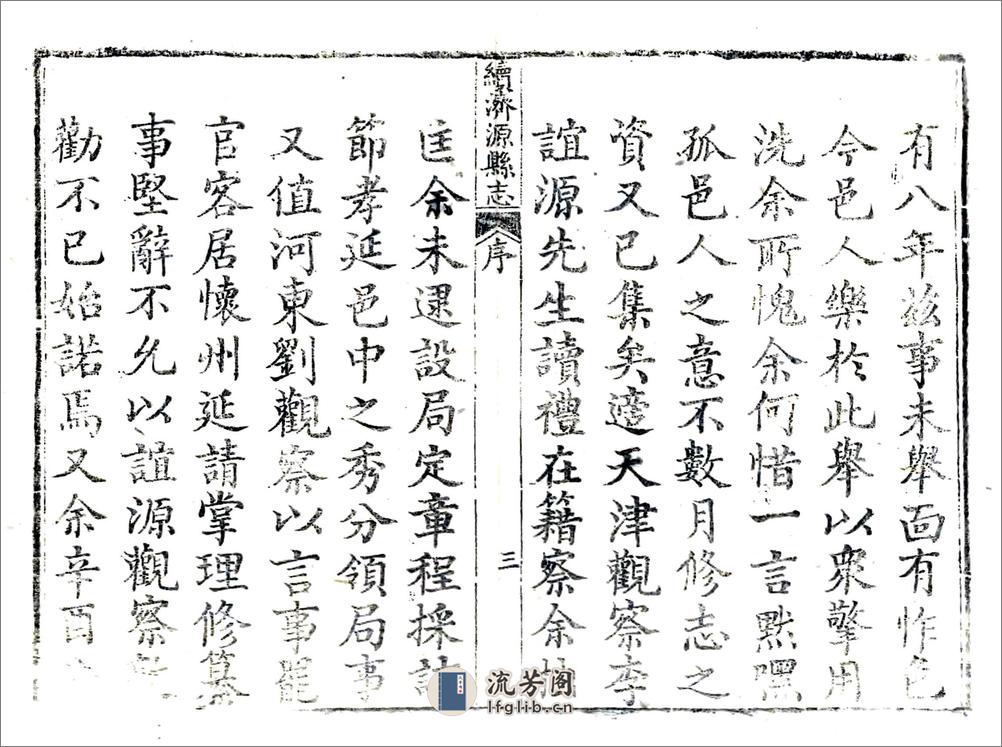 有八年茲事未舉面有怍色
今邑人樂於此舉以眾擎用
洗余所愧余何惜一言默嘿
孤邑人之意不數月修志之
資又已集矣適天津觀察李
誼源先生讀禮在籍察余
續濟源縣志
序
三
匡余未逮設局定章程採
節孝延邑中之秀分領局事
又值河東劉觀察以言事罷
官客居懷州延請掌理修纂
事堅辭不允以誼源觀察
勸不已始諾焉又余辛酉
流芳阁
lfglib.cn